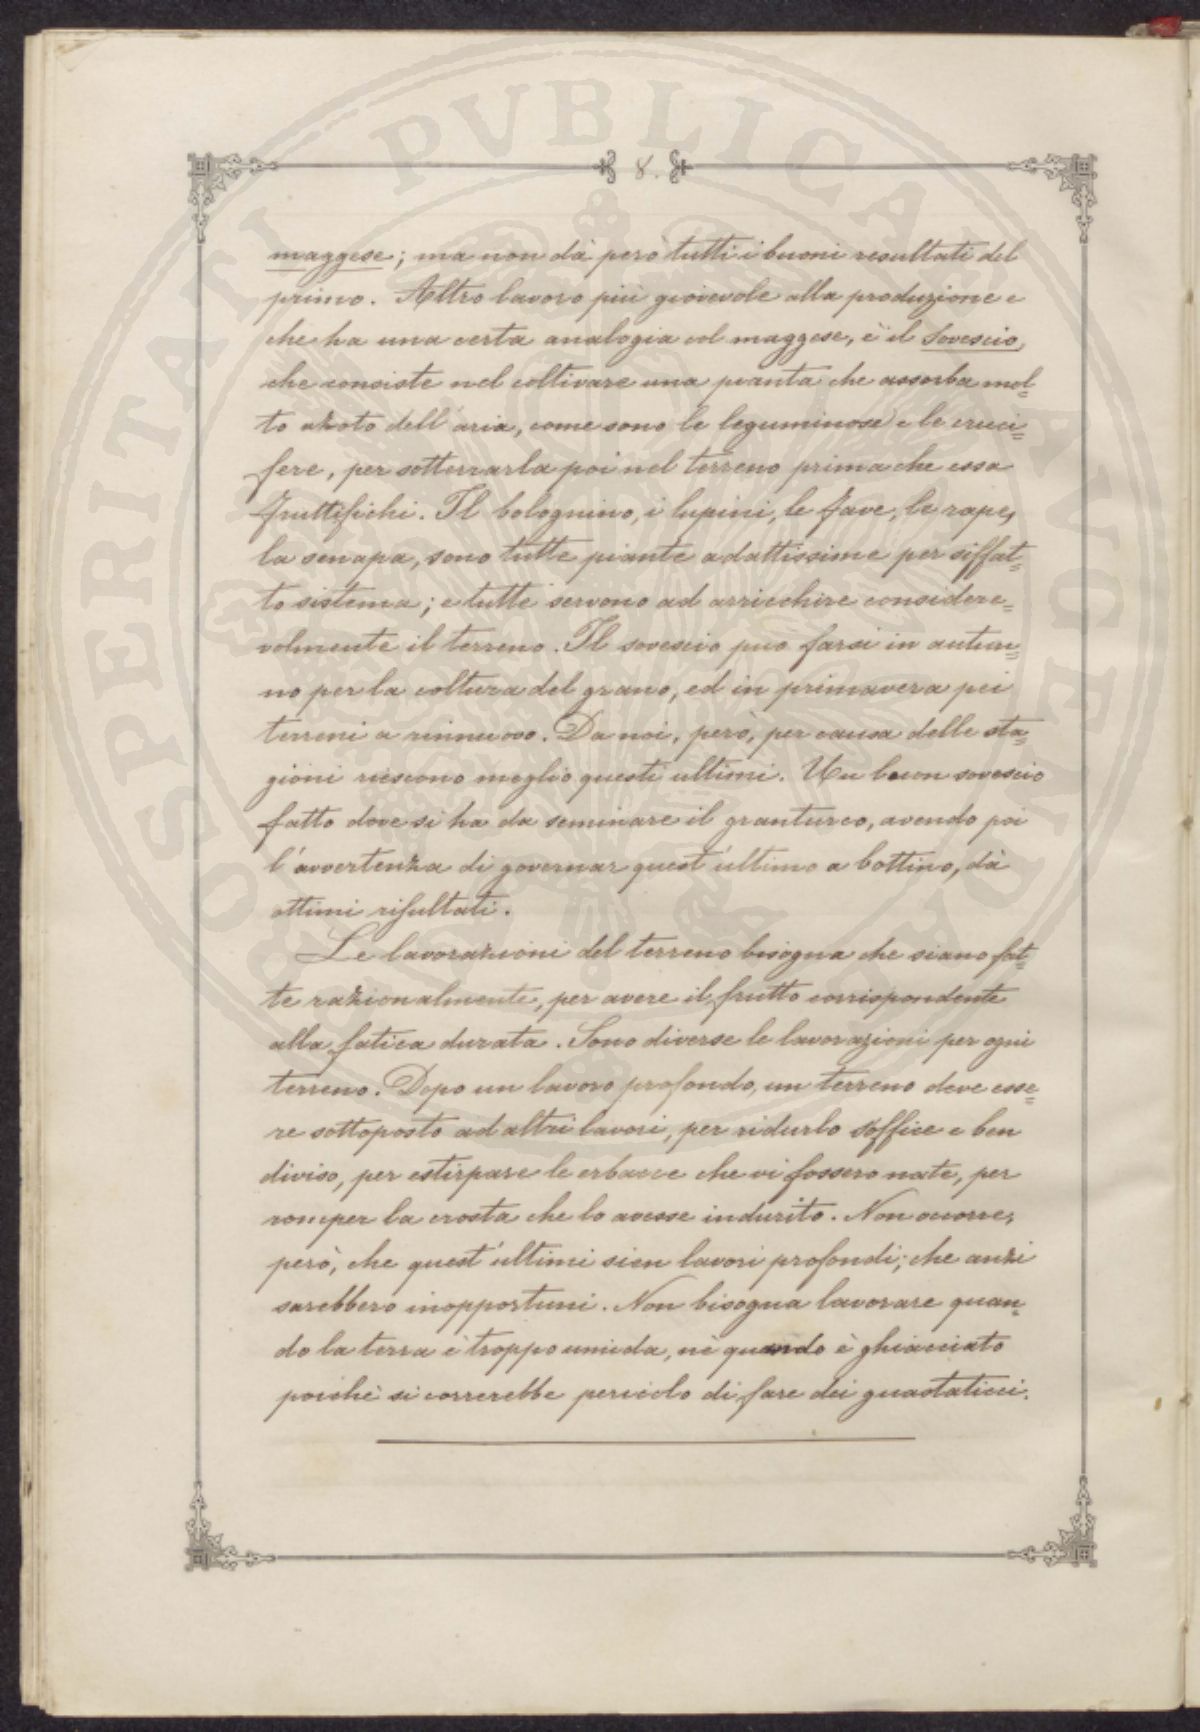 8.
maggese; ma non dà però tutti i buoni resultati del
primo. Altro lavoro più giovevole alla produzione e
che ha una certa analogia col maggese, è il Sovescio,
che consiste nel coltivare una pianta che assorba mol=
to azoto dell'aria, come sono le leguminose e le cruci=
fere, per sotterrarla poi nel terreno prima che essa
fruttifichi. Il bolognino, i lupini, le fave, le rape,
la senapa, sono tutte piante adattissime per siffat=
to sistema; e tutte servono ad arricchire considere=
volmente il terreno. Il sovescio può farsi in autun=
no per la coltura del grano, ed in primavera pei
terreni a rinnuovo. Da noi, però, per causa delle sta=
gioni riescono meglio questi ultimi. Un buon sovescio
fatto dove si ha da seminare il granturco, avendo poi
l'avvertenza di governar quest'ultimo a bottino, dà
ottimi risultati.
Le lavorazioni del terreno bisogna che siano fat=
te razionalmente, per avere il frutto corrispondente
alla fatica durata. Sono diverse le lavorazioni per ogni
terreno. Dopo un lavoro profondo, un terreno deve esse=
re sottoposto ad altri lavori, per ridurlo soffice e ben
diviso, per estirpare le erbacce che vi fossero nate, per
romper la crosta che lo avesse indurito. Non ocorre,
però, che quest'ultimi sien lavori profondi; che anzi
sarebbero inopportuni. Non bisogna lavorare quan=
do la terra è troppo umida, nè quando è ghiacciato
poichè si correrebbe pericolo di fare dei guastaticci.
SPERITATI PVBLICAE AVGENDAE